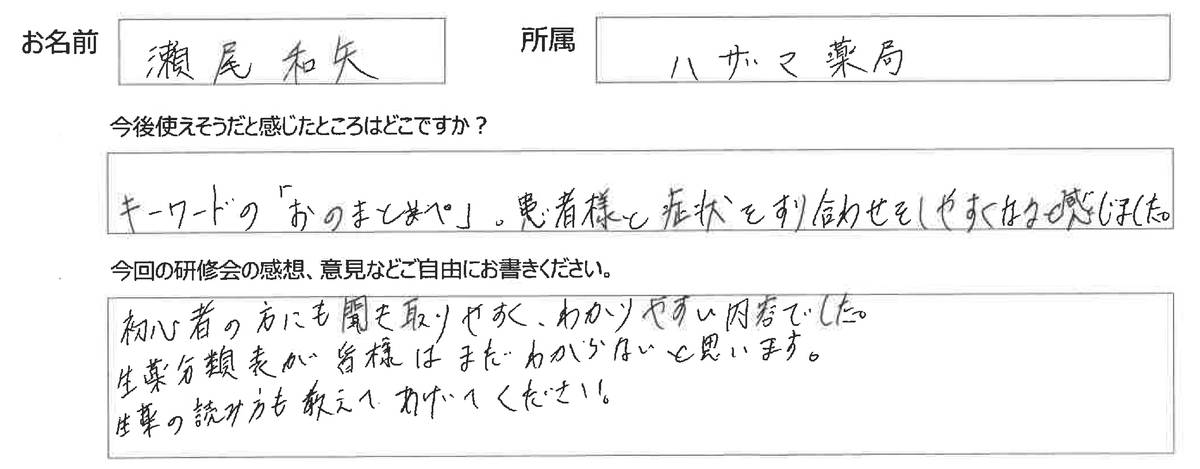 お名前 瀬尾和矢 所属 ハザマ薬局
今後使えそうだと感じたところはどこですか？
キーワードの「おのまとめぺ」。患者様と症状をすり合わせをしやすくなると感じました。
今回の研修会の感想、意見などご自由にお書きください。
初心者の方にも聞き取りやすく、わかりやすい内容でした。
生薬分類表が皆様はまだわからないと思います。
生薬の読み方も教えてあげてください。